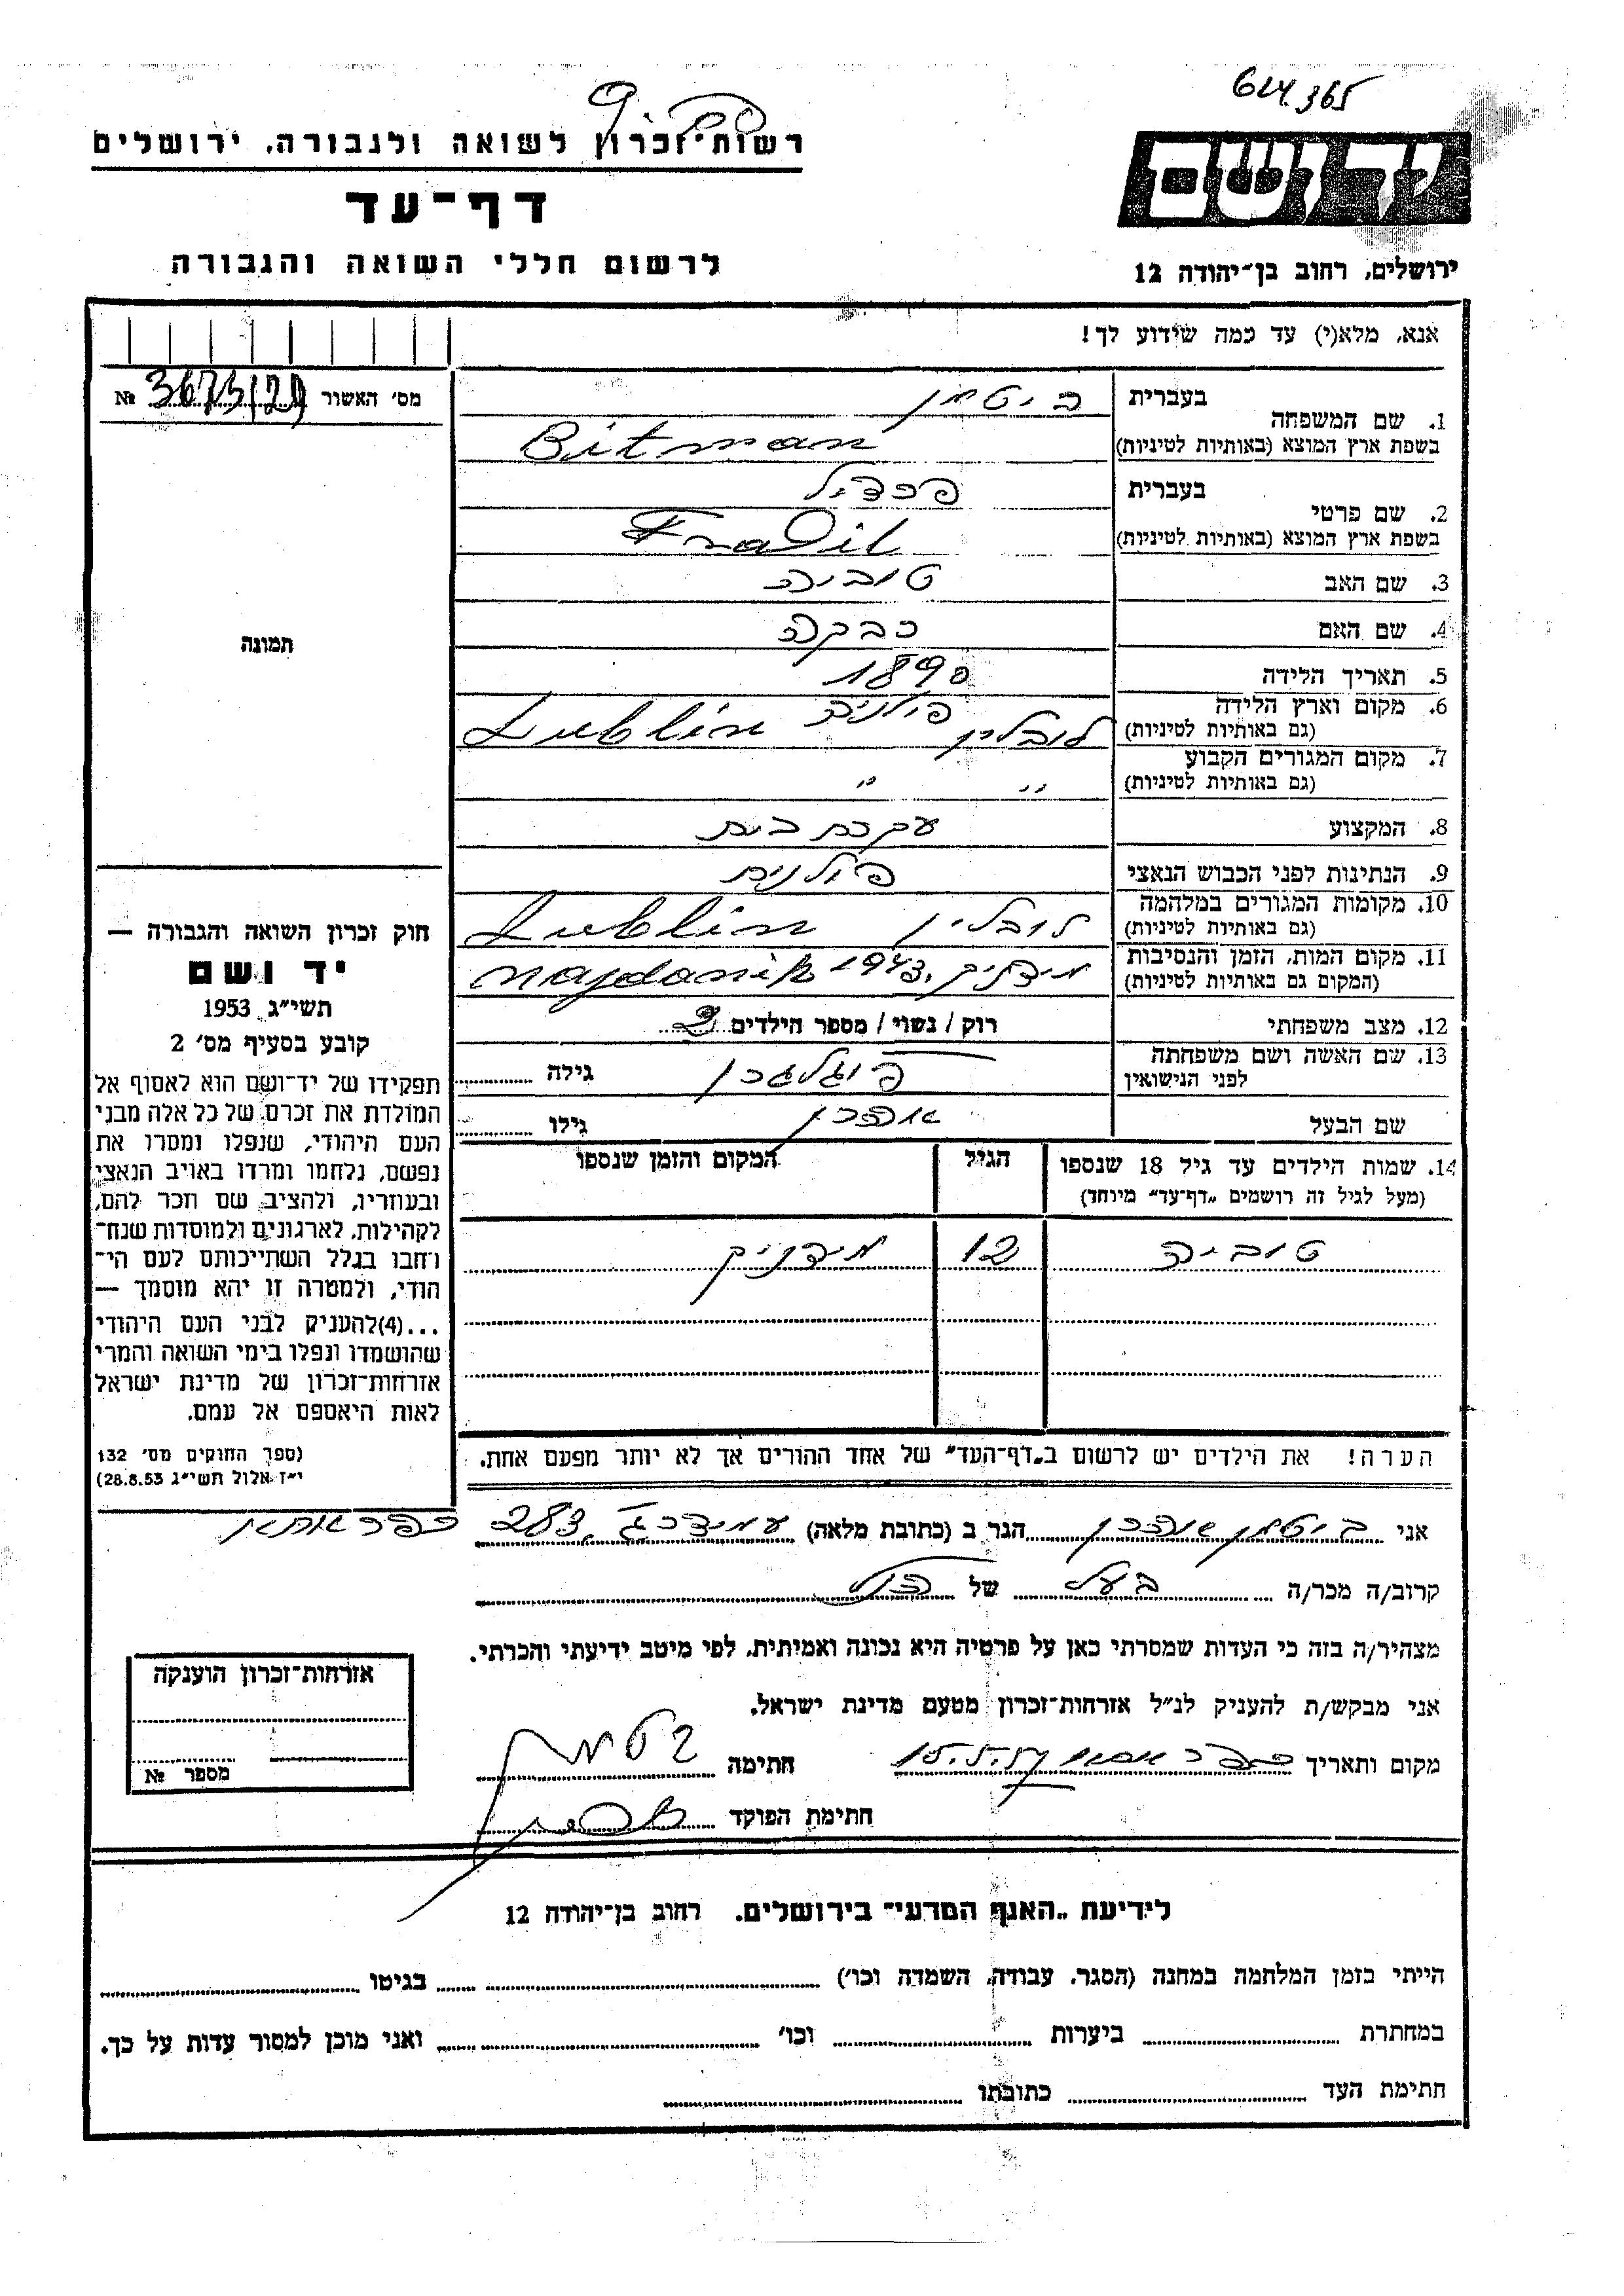 614.365
רשות־זכרון לשואה ולגבורה, ירושלים
דף־עד
לרשום חללי השואה והגבורה
ידושם
ירושלים, רחוב בן־יהודה 12
אנא, מלא(י) עד כמה שידוע לך!
מס׳ האשור 3673/29 №
1. שם המשפחה
בעברית ביטמן
בשפת ארץ המוצא (באותיות לטיניות) Bitman
2. שם פרטי
בעברית פרדיל
בשפת ארץ המוצא (באותיות לטיניות) Fradil
3. שם האב טוביה
4. שם האם רבקה
5. תאריך הלידה 1890
6. מקום וארץ הלידה
(גם באותיות לטיניות) לובלין פולניה Lublin
7. מקום המגורים הקבוע
(גם באותיות לטיניות) " "
8. המקצוע עקרת בית
9. הנתינות לפני הכבוש הנאצי פולנית
10. מקומות המגורים במלהמה
(גם באותיות לטיניות) לובלין Lublin
11. מקום המות, הזמן והנסיבות
(המקום גם באותיות לטיניות) 1943. Majdanik
12. מצב משפחתי רוק / נשוי / מספר הילדים 2
13. שם האשה ושם משפחתה
לפני הנישואין גילה
שם הבעל אהרן גילו
14. שמות הילדים עד גיל 18 שנספו
(מעל לגיל זה רושמים „דף־עד״ מיוחד)
הגיל
המקום והזמן שנספו
טוביה 12 מידניק
הערה! את הילדים יש לרשום ב„דף־העד״ של אחד ההורים אך לא יותר מפעם אחת.
תמונה
חוק זכרון השואה והגבורה —
יד ושם
תשי״ג 1953
קובע בסעיף מס׳ 2
תפקידו של יד־ושם הוא לאסוף אל
המולדת את זכרם של כל אלה מבני
העם היהודי, שנפלו ומסרו את
נפשם, נלחמו ומרדו באויב הנאצי
ובעוזריו, ולהציב שם וזכר להם,
לקהילות, לארגונים ולמוסדות שנח־
רחבו בגלל השתייכותם לעם הי־
הודי, ולמטרה זו יהא מוסמך —
...(4)להעניק לבני העם היהודי
שהושמדו ונפלו בימי השואה והמרי
אזרחות־זכרון של מדינת ישראל
לאות היאספם אל עמם.
(ספר החוקים מס׳ 132
י״ז אלול תשי״ג 28.8.53)
אני ביטמן אהרן הגר ב (כתובת מלאה) 283 כפר אתא
קרוב/ה מכר/ה בעל של
מצהיר/ה בזה כי העדות שמסרתי כאן על פרטיה היא נכונה ואמיתית, לפי מיטב ידיעתי והכרתי.
אני מבקש/ת להעניק לנ״ל אזרחות־זכרון מטעם מדינת ישראל.
מקום ותאריך כפר אתא חתימה
חתימת הפוקד
אזרחות־זכרון הוענקה
מספר №
לידיעת „האגף המדעי״ בירושלים, רחוב בן־יהודה 12
הייתי בזמן המלחמה במחנה (הסגר, עבודה, השמדה וכו׳) בגיטו
במחתרת ביערות וכו׳ ואני מוכן למסור עדות על כך.
חתימת העד כתובתו